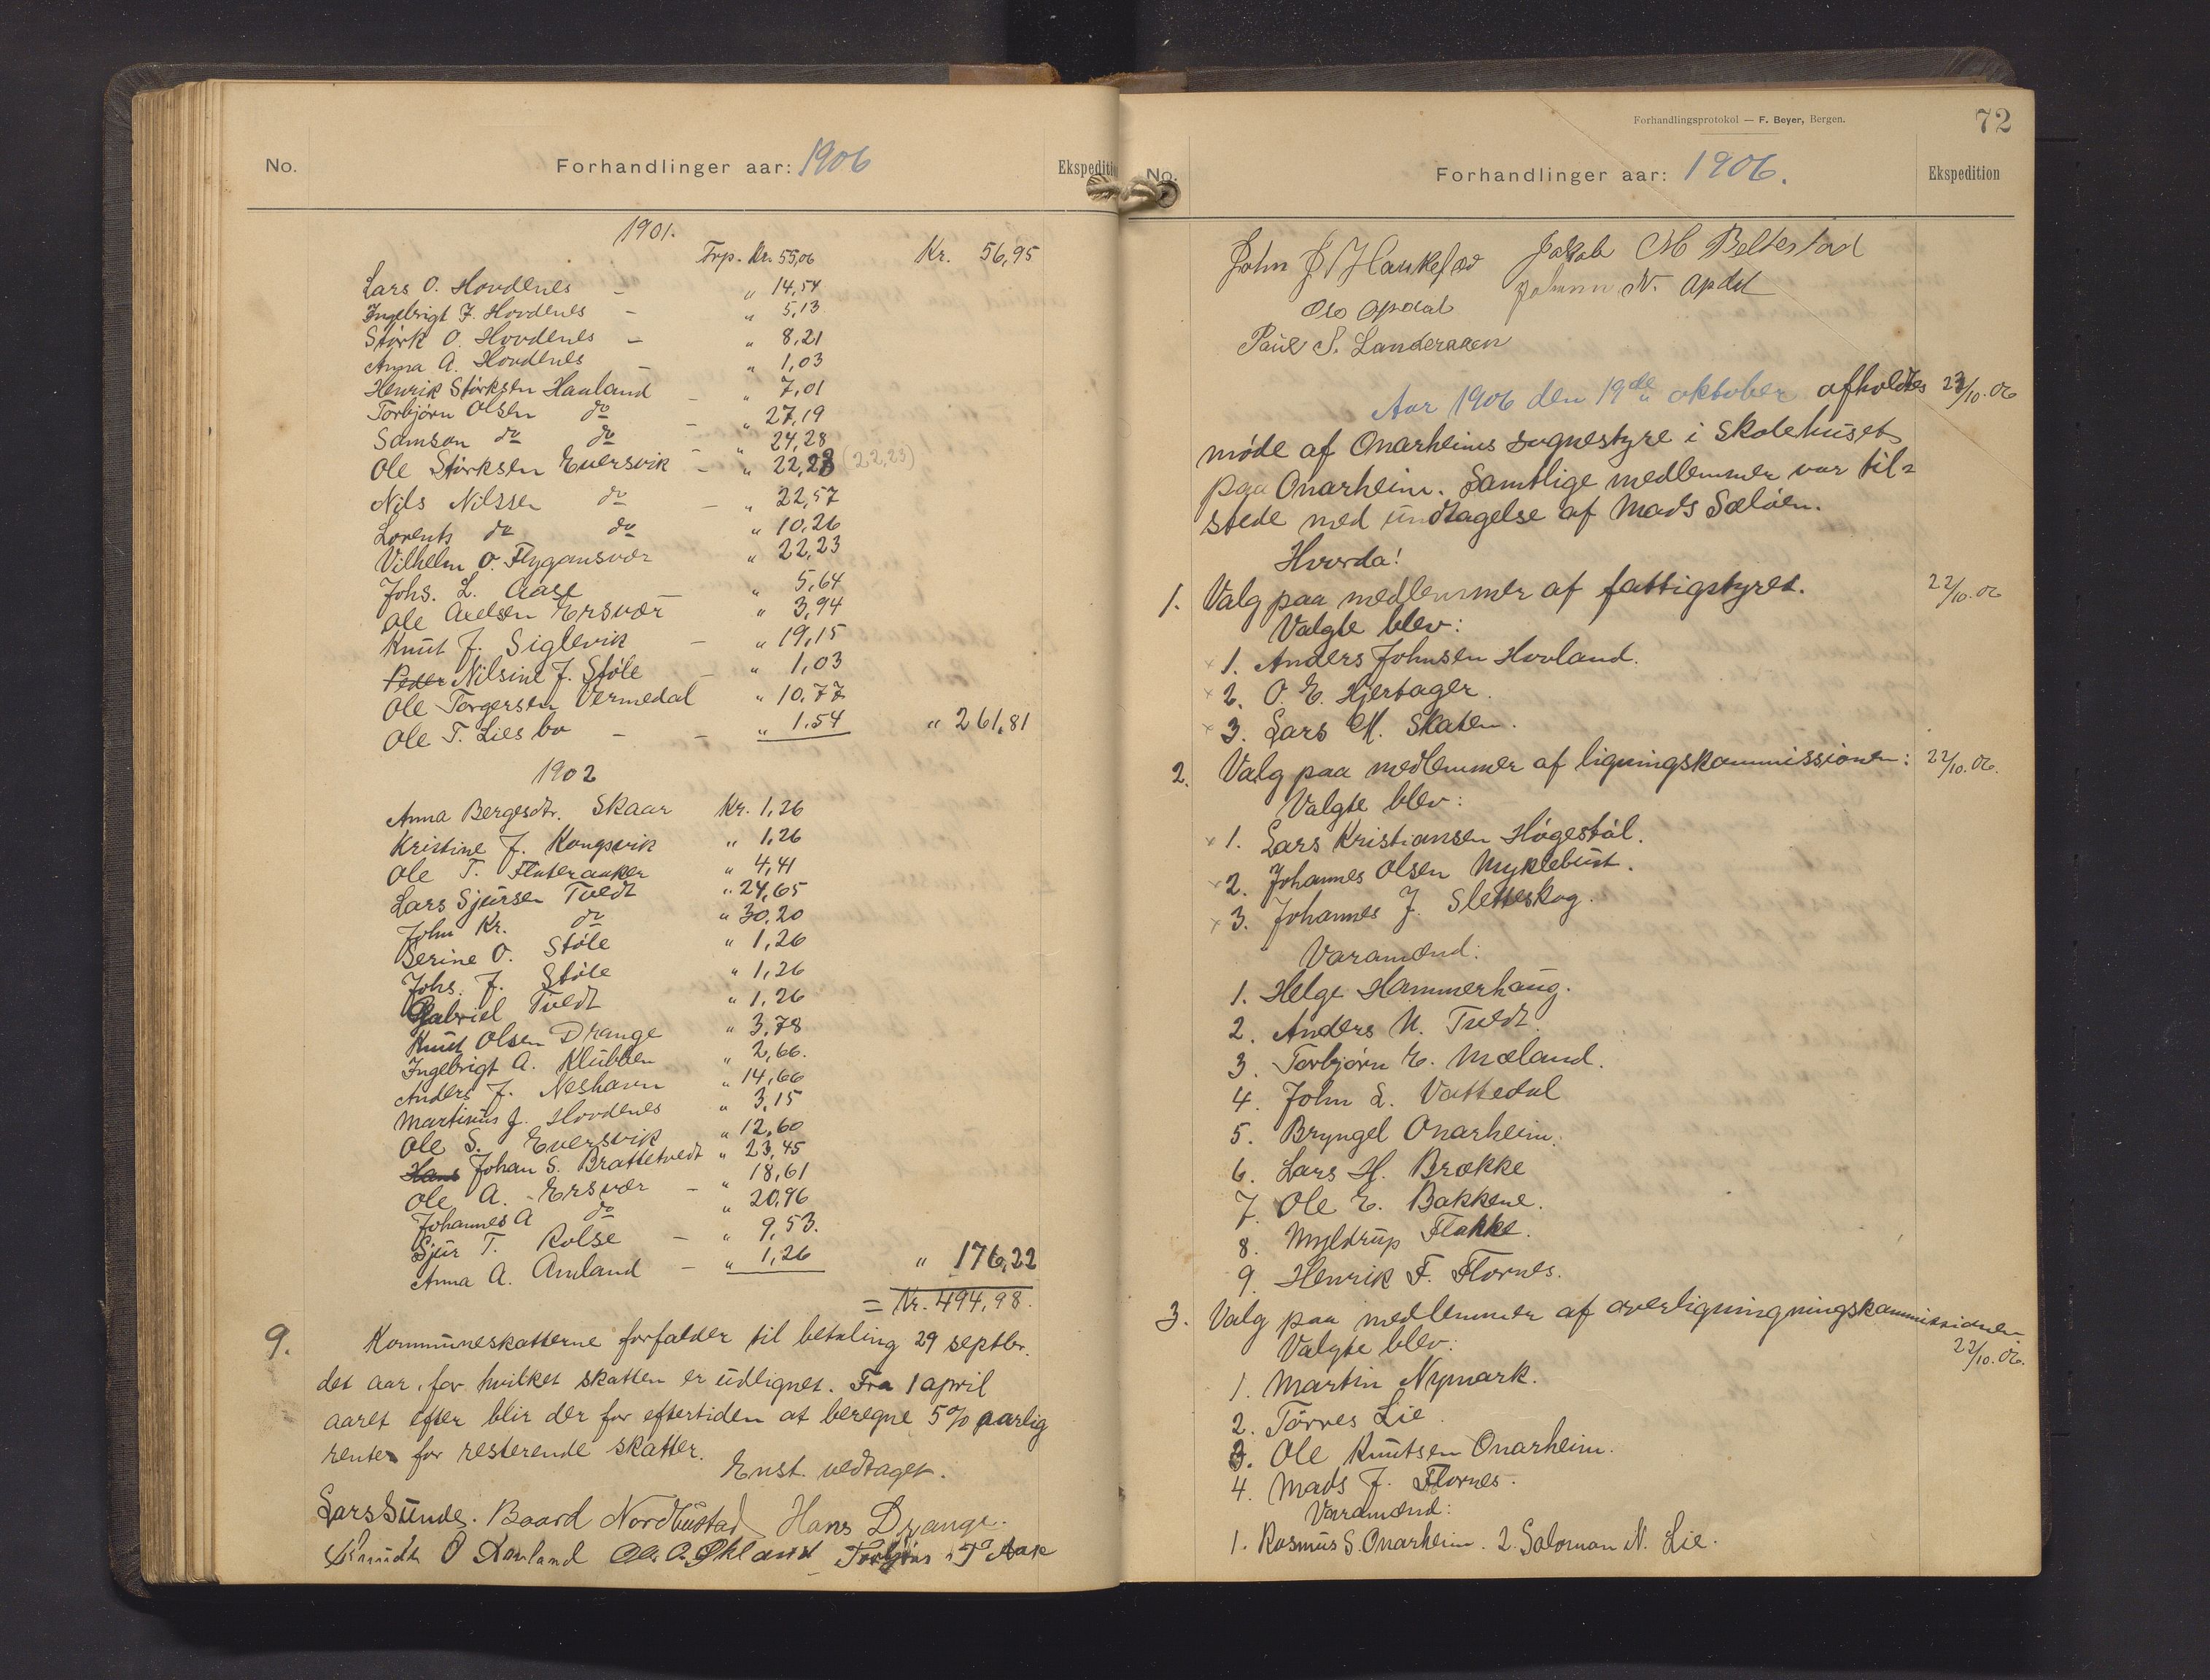 No. Forhandlinger aar: 1906 Ekspediti
1901.
Trp. Kr. 55,06 Kr. 56,95
Lars O. Hovdenes - " 14,54
Ingebrigt J. Hovdenes - " 5,13
Størk O. Hovdenes - " 8,21
Anna A. Hovdenes - " 1,03
Henrik Størksen Hauland - " 7,01
Torbjørn Olsen do - " 27,19
Samson do do - " 24,28
Ole Størksen Eversvik - " 22,23 (22,23)
Nils Nilssen do - " 22,57
Lorents do do " 10,26
Vilhelm O. Flygansvær " 22,23
Johs. L. Aase " 5,64
Ole Axelsen Ersvær " 3,94
Knut J. Siglevik - " 19,15
Peder Nilsine J. Støle - " 1,03
Ole Torgersen Vermedal " 10,77
Ole T. Liesbø - - " 1.54 " 261,81
1902
Anna Bergesdtr. Skaar Kr. 1,26
Kristine J. Kongsvik " 1,26
Ole T. Flateraaker " 4,41
Lars Sjursen Tvedt " 24,65
John Kr. do " 30,20
Serine O. Støle " 1,26
Johs. J. Støle " 1,26
Gabriel Tvedt " 1,26
Knut Olsen Drange " 3,78
Ingebrigt A. Klubben " 2,66.
Anders J. Neshavn " 14,66
Martinus J. Hovdenes " 3,15
Ole S. Eversvik " 12,60
Hans Johan S. Brattetvedt " 23,45
Ole A. Ersvær - " 18,61
Johannes A do " 20,96
Sjur T. Rolse - " 9,53.
Anna A. Amland - " 1,26 " 176,22
= Kr. 494,98.
9. Kommuneskatterne forfalder til betaling 29 septbr.
det aar, for hvilket skatten er udlignet. Fra 1 april
aaret efter blir der for eftertiden at beregne 5% aarlig
renter for resterende skatter.
Enst. vedtaget.
Lars Sunde. Baard Nordhustad Hans Drange.
Knudt O Økland Torbjørn T Aak
Forhandlingsprotokol — F. Beyer, Bergen. 72
No. Forhandlinger aar: 1906. Ekspedition
John J Haukefær Jakob M Beltestad
Johann N. Apdal
Ole Opdal
Paul S. Landeraaen
Aar 1906 den 19de oktober afholdtes 23/10.06
møde af Onarheims sognestyre i skolehuset
paa Onarheim. Samtlige medlemmer var til=
stede med undtagelse af Mads Sæløen.
Hvorda!
1. Valg paa medlemmer af fattigstyret. 22/10.06
Valgte blev:
x 1. Anders Johnsen Hovland.
x 2. O. E. Hjertager.
x 3. Lars M. Skaten.
2. Valg paa medlemmer af ligningskommissionen: 22/10.06.
Valgte blev:
x 1. Lars Kristiansen Høgestøl.
x 2. Johannes Olsen Myklebust.
x 3. Johannes J. Sletteskog.
Varamænd:
1. Helge Hammerhaug.
2. Anders N. Tvedt.
3. Torbjørn E. Mæland.
4. John L. Vattedal
5. Bryngel Onarheim.
6. Lars H. Brække
7. Ole E. Bakkene.
8. Myldrup Flakke.
9. Henrik F. Flornes.
3. Valg paa medlemmer af overligningningskommissionen
Valgte blev: 22/10.06.
1. Martin Nymark.
2. Tørres Lie.
3. Ole Knutsen Onarheim.
4. Mads J. Flornes.
Varamænd:
1. Rasmus S. Onarheim. 2. Salomon N. Lie.